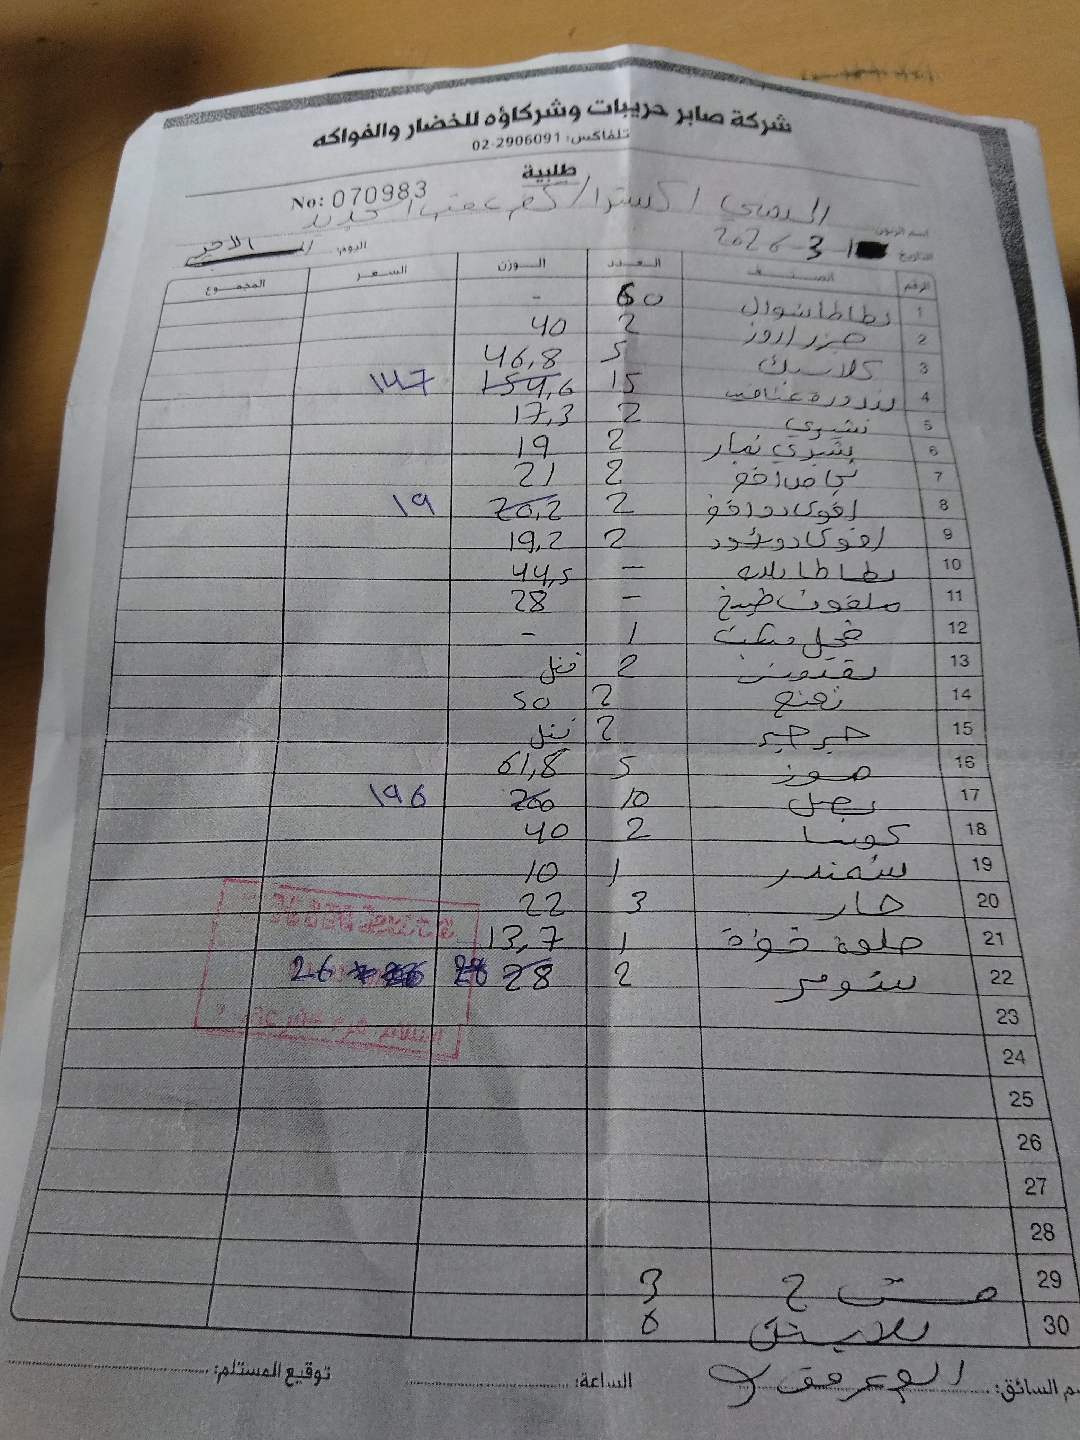 شركة صابر حريبات وشركاؤه للخضار والفواكه
تلفاكس: 02-2906091
طلبية
No: 070983
اسم الزبون: اكسترا / كفر عقب الجديد
التاريخ 1-3-2026 اليوم: الاحد
الرقم الصنف العدد الوزن السعر المجموع
1 بطاطا شوال 60 -
2 جزر اروز 2 40
3 كلاسيك 5 46,8
4 بندورة عناقيد 15 154,6 147
5 شيري 2 17,3
6 شيري تمار 2 19
7 نجاص افو 2 21
8 افوكادو افو 2 20,2 19
9 افوكادو 2 19,2
10 بطاطا - 44,5
11 ملفوف طبيخ - 28
12 فجل 1 -
13 بقدونس 2 فتل
14 نعنع 2 50
15 جرجير 2 فتل
16 موز 5 61,8
17 بصل 10 200 196
18 كوسا 2 40
19 شمندر 1 10
20 حار 3 22
21 حلوة 1 13,7
22 ثوم 2 28 26
23
24
25
26
27
28
29 ح 3
30 6
اسم السائق: الساعة: توقيع المستلم: